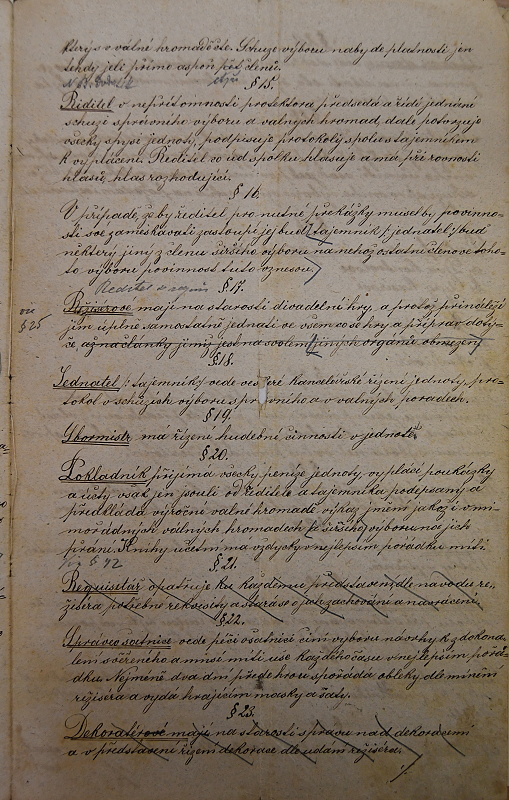 kterýs v válné hromadě čte. Schuze výboru nabyde platnosti jen
tehdy jeli přímo aspoň pět členů.
§ 15.
Ředitel v nepřítomnosti protektora předsedá a řídí jednání
schuzí správního výboru a valných hromad, dále potvrzuje
všecky spisy jednoty, podpisuje protokoly spolu s tajemníkem
k vyplácení. Ředitel co úd spolku hlasuje a má při rovnosti
hlasů, hlas rozhodující.
§ 16.
V případě, že by ředitel pro nutné překážky musel by povinno-
sti své zaměškávati zastoupí jej buď tajemník /: jednatel :/ buď
některý jiný z členu širšího výboru na nehož ostatní členové toho-
to výboru povinnost tuto vznesou,
Ředitel a režisér
§ 17.
Režisérové mají na starosti divadelní hry, a protož přináleží
viz
§ 25
jim úplně samostatně jednati ve všem co se hry a příprav doty-
če, až na články jimiž jest na svolení jiných orgánů obmezený
§ 18.
Jednatel /: tajemník :/ vede veškeré kancelářské řízení jednoty, pro-
tokol v schůzích výboru správního a v valných poradách.
§ 19.
Sbormistr má řízení hudební činnosti v jednotě.
§ 20.
Pokladník přijímá všecky peníze jednoty, vyplácí poukázky
a účty však jen jsouli od ředitele a tajemníka podepsaný a
předkládá výroční valné hromadě výkaz jmění jakož i v mi-
mořádných valných hromadách i širšího výboru na jich
přání. Knihy účetní má vždycky v nejlepším pořádku míti.
§ 42
§ 21.
Requisitář opatřuje ku každému představení dle návodu re-
žiséra potřebné rekvisity a stará se o jich zachování a navrácení.
§ 22.
Správce šatnice vede péči o šatnici činí výboru návrhy k zdokona-
lení svěřeného a musí míti vše každého času v nejlepším pořá-
dku. Nejméně dva dni přede hrou spořádá obleky dle mínění
režiséra a vydá hrajícím masky a šaty.
§ 23.
Dekoratérové mají na starosti správu nad dekoracemi
a v představení řízení dekorace dle udání režiséra.